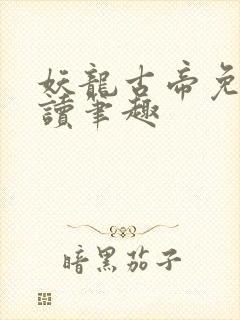 妖龍古帝免
讀筆趣
暗黑茄子